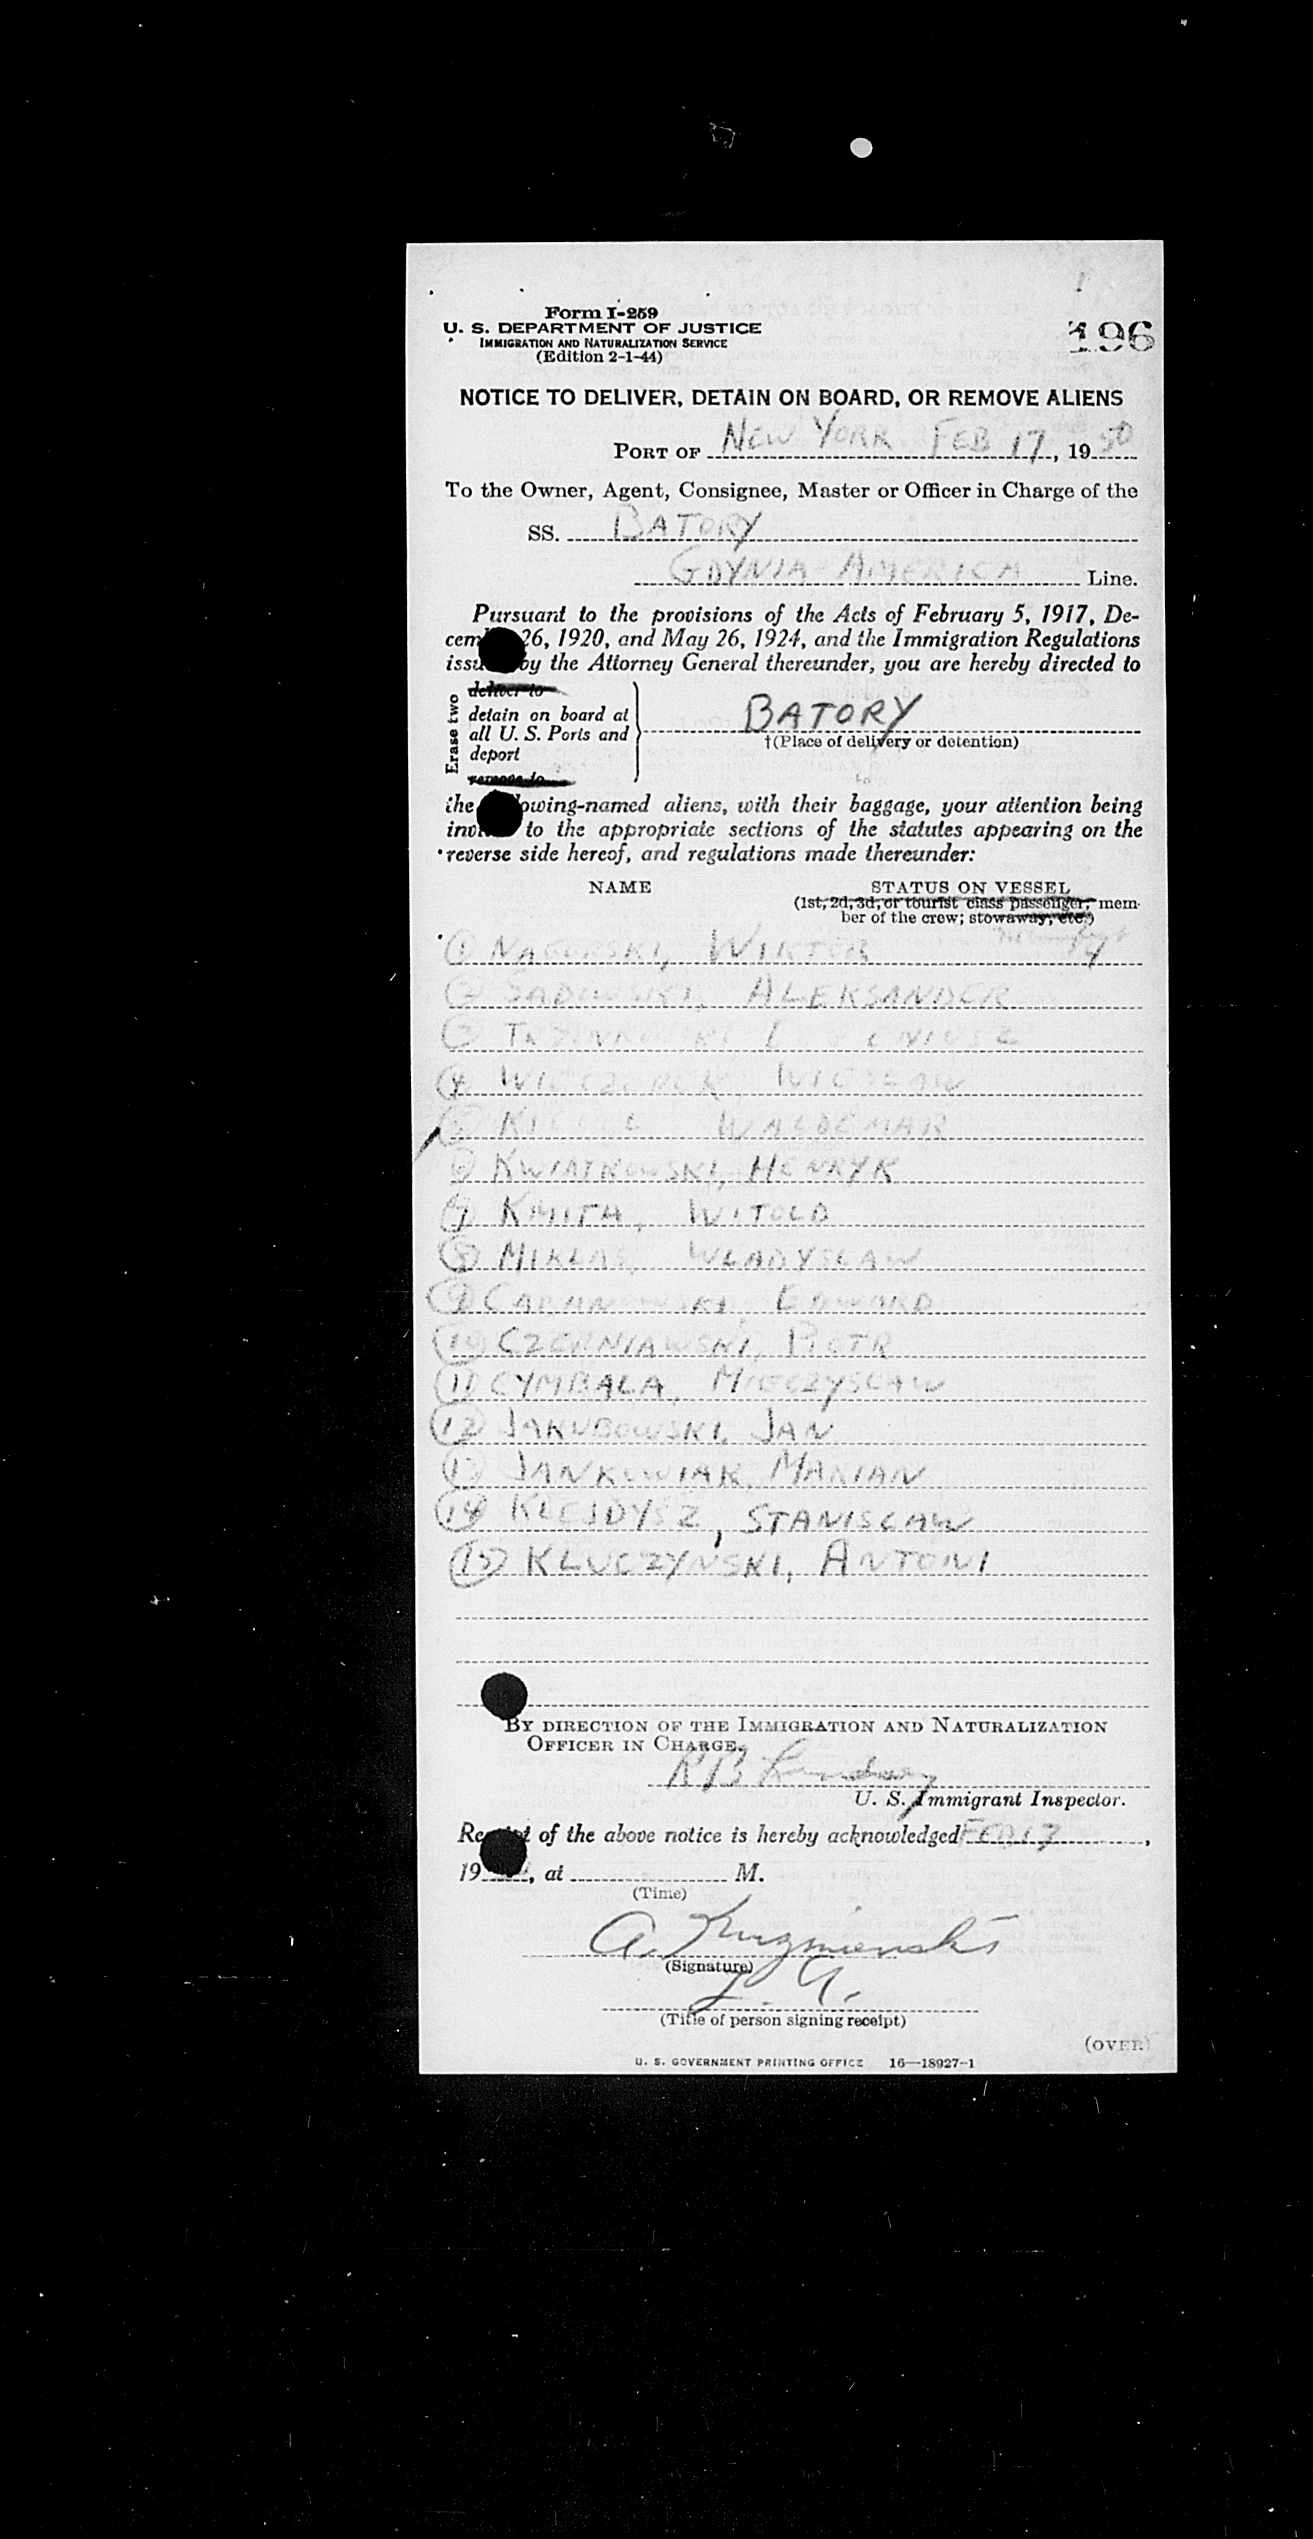 Form I-259
U. S. DEPARTMENT OF JUSTICE
IMMIGRATION AND NATURALIZATION SERVICE
(Edition 2-1-44)
196
NOTICE TO DELIVER, DETAIN ON BOARD, OR REMOVE ALIENS
PORT OF NEW YORK FEB 17, 1950
To the Owner, Agent, Consignee, Master or Officer in Charge of the
SS. BATORY
GDYNIA-AMERICA Line.
Pursuant to the provisions of the Acts of February 5, 1917, De-
cem 26, 1920, and May 26, 1924, and the Immigration Regulations
issu by the Attorney General thereunder, you are hereby directed to
Erase two
deliver to
detain on board at
all U. S. Ports and
deport
remove to
BATORY
†(Place of delivery or detention)
the owing-named aliens, with their baggage, your attention being
inv to the appropriate sections of the statutes appearing on the
reverse side hereof, and regulations made thereunder:
NAME STATUS ON VESSEL
(1st, 2d, 3d, or tourist class passenger, mem-
ber of the crew; stowaway, etc.)
1 NAGORSKI, WIKTOR
2 SADOWSKI, ALEKSANDER
3
4 WIECZOREK, WIESLAW
5 WALDEMAR
6 KWIATKOWSKI, HENRYK
7 KMITA, WITOLD
8 MIKLAS, WLADYSLAW
9 EDWARD
10 CZERNIAWSKI, PIOTR
11 CYMBALA, MIECZYSLAW
12 JAKUBOWSKI, JAN
13 JANKOWIAK, MARIAN
14 KLEJDYSZ, STANISLAW
15 KLUCZYNSKI, ANTONI
BY DIRECTION OF THE IMMIGRATION AND NATURALIZATION
OFFICER IN CHARGE.
R B Lindsay
U. S. Immigrant Inspector.
Re t of the above notice is hereby acknowledged FEB 17,
19 , at M.
(Time)
A. Kuzmienski
(Signature)
(Title of person signing receipt)
(OVER)
U. S. GOVERNMENT PRINTING OFFICE 16—18927-1